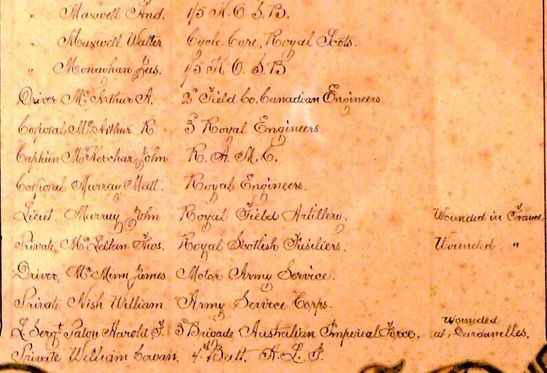 " Maxwell Fred. 1/5 K.O.S.B.
" Maxwell Walter Cycle Corp, Royal Scots.
" Monaghan Jas. 1/5 K.O.S.B
Driver McArthur A. 2d Field Co. Canadian Engineers
Corporal McArthur R. 3d Royal Engineers
Captain McKerchar John R.A.M.C.
Corporal Murray Matt. Royal Engineers.
Lieut. Murray John Royal Field Artillery. Wounded in France
Private McLellan Thos. Royal Scottish Fusiliers. Wounded "
Driver McMinn James Motor Army Service.
Private Nish William Army Service Corps.
L. Sergt Paton Harold F. 3d Brigade Australian Imperial Force. Wounded at Dardanelles.
Private William Cowan. 4th Batt. H.L.I.